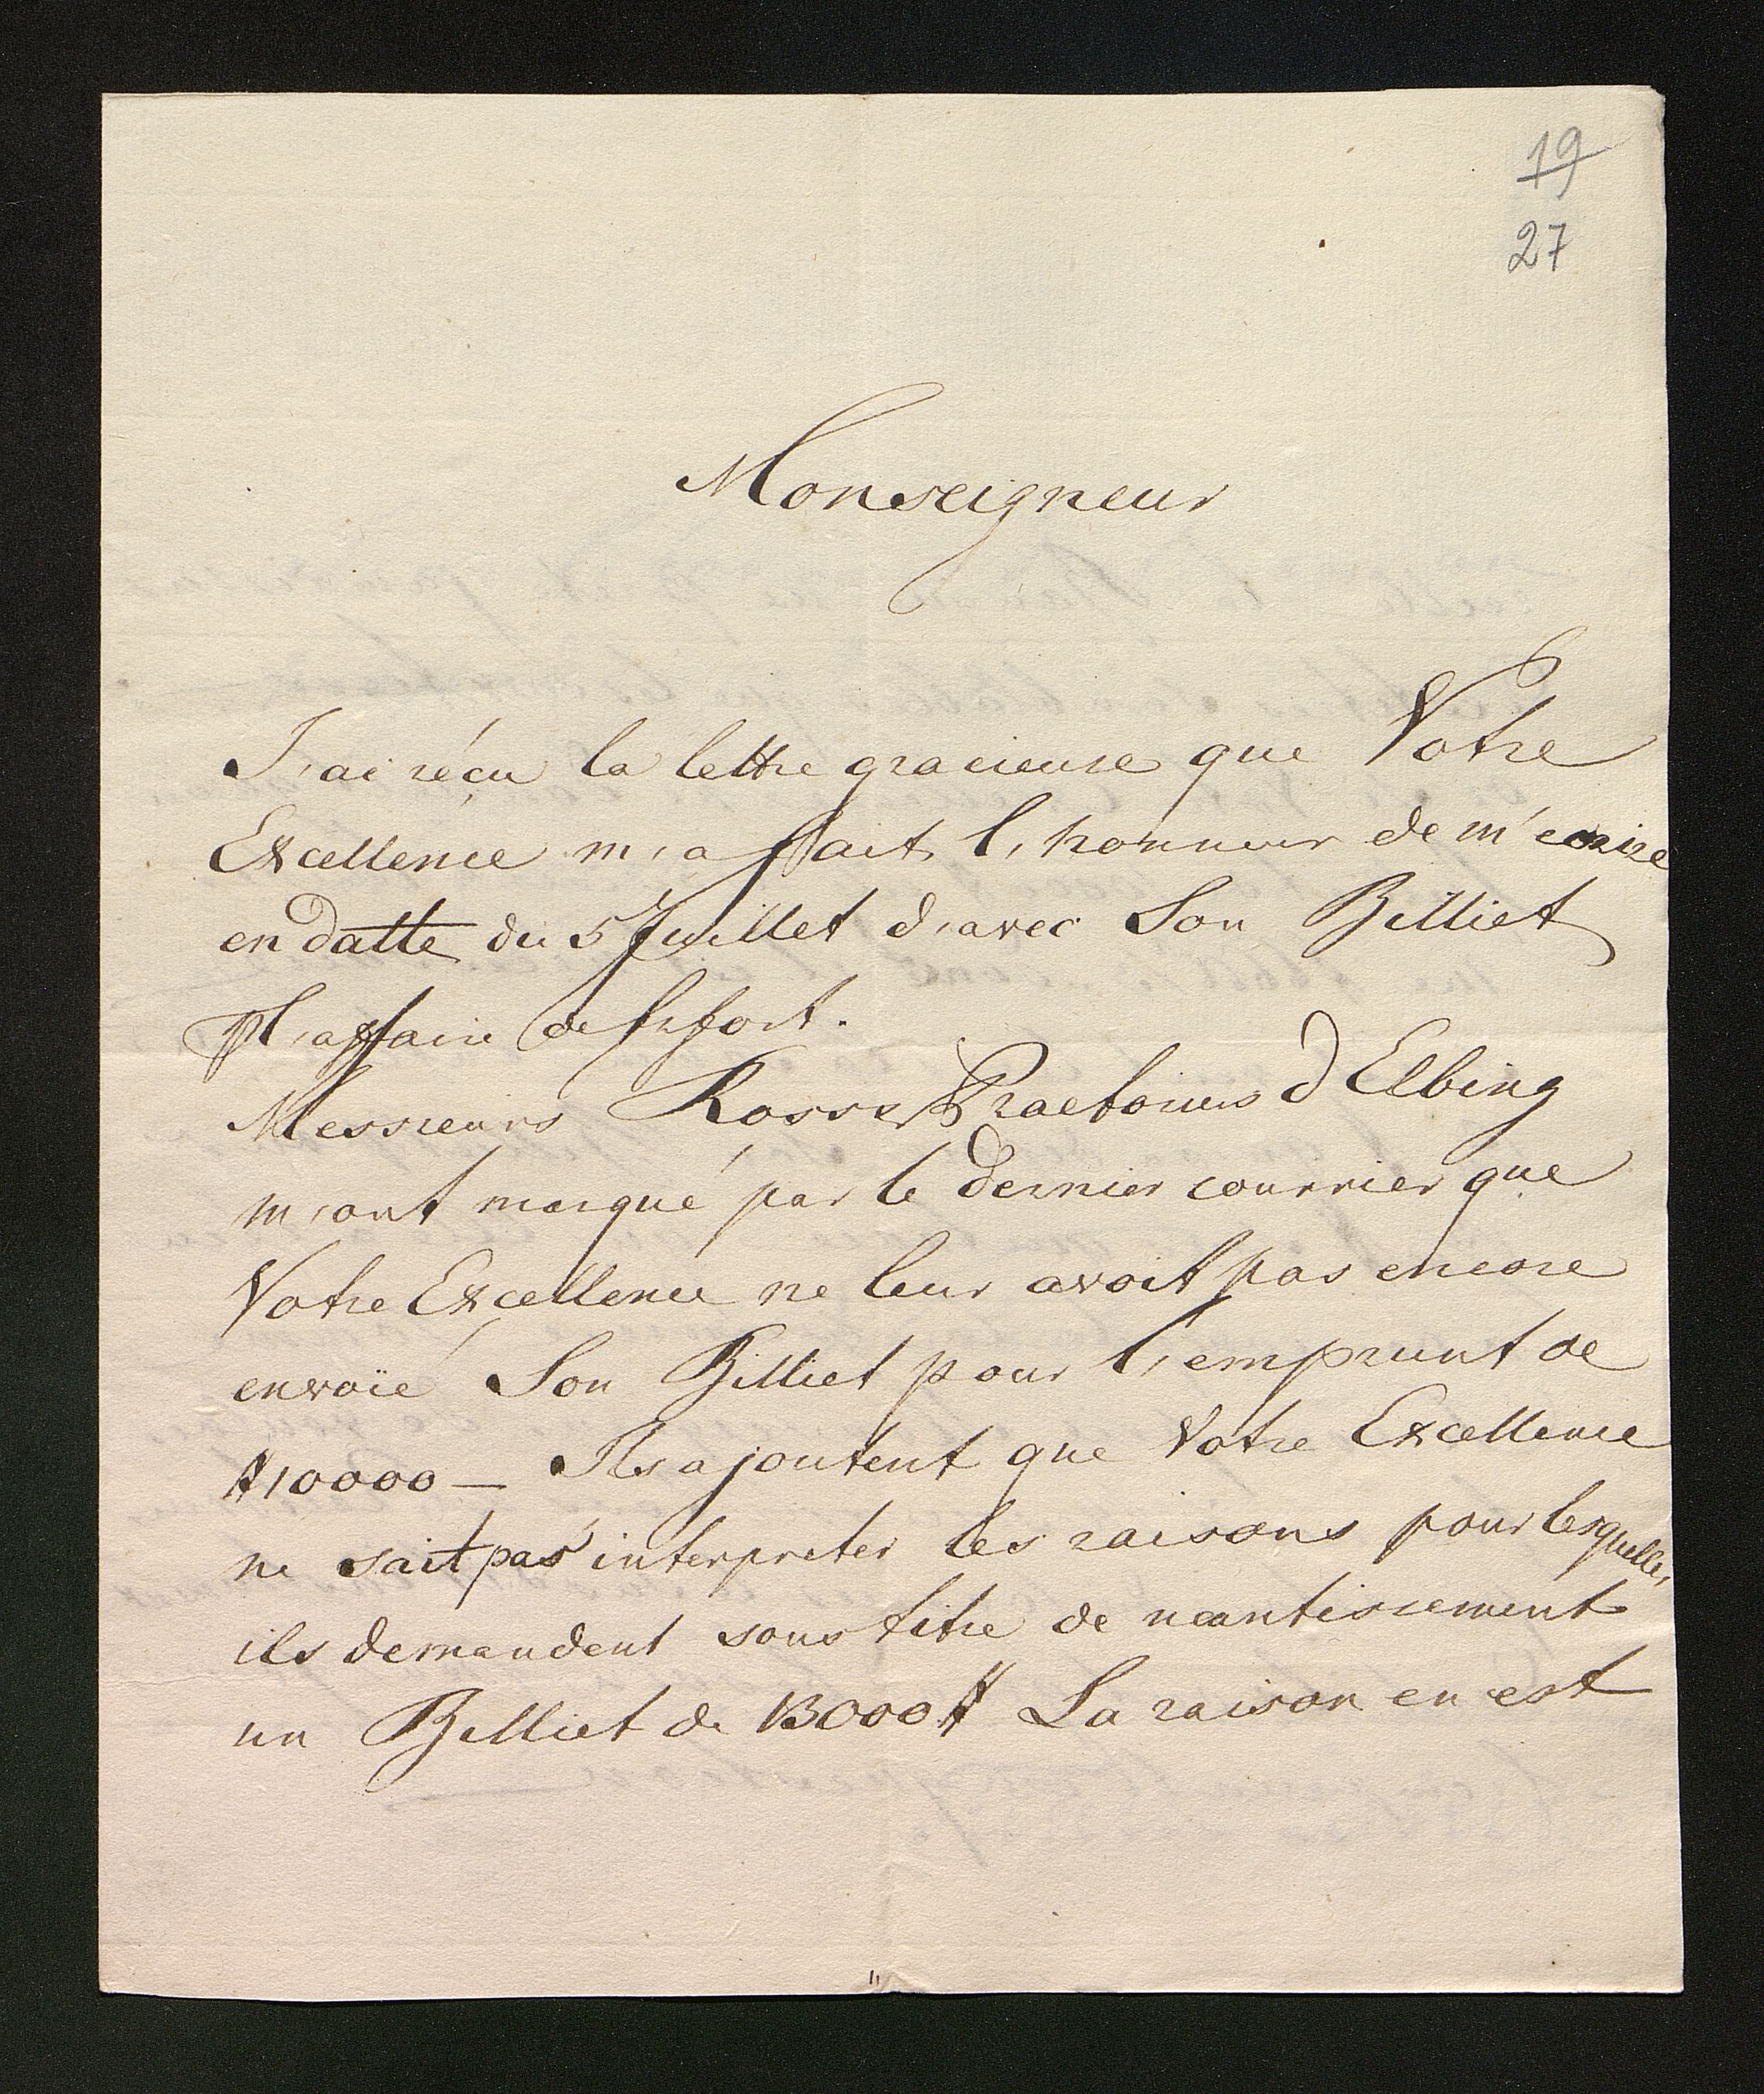 19
27
Monseigneur
J'ai réçu la lettre gracieuse que Votre
Excellence m'a fait l'honneur de m'ecrire
en datte du 5 Juillet d'avec Son Billiet
l'affaire de
Messieurs Rosse & Praetorius d Elbing
m'ont marqué par le dernier courrier que
Votre Excellence ne leur avoit pas encore
envoïé Son Billiet pour l'emprunt de
# 10000 — Ils ajoutent que Votre Excellence
ne sait pas interpreter les raisons pour lesquelles
ils demandent sous titre de neantissement
un Billiet de 13000 # La raison en est